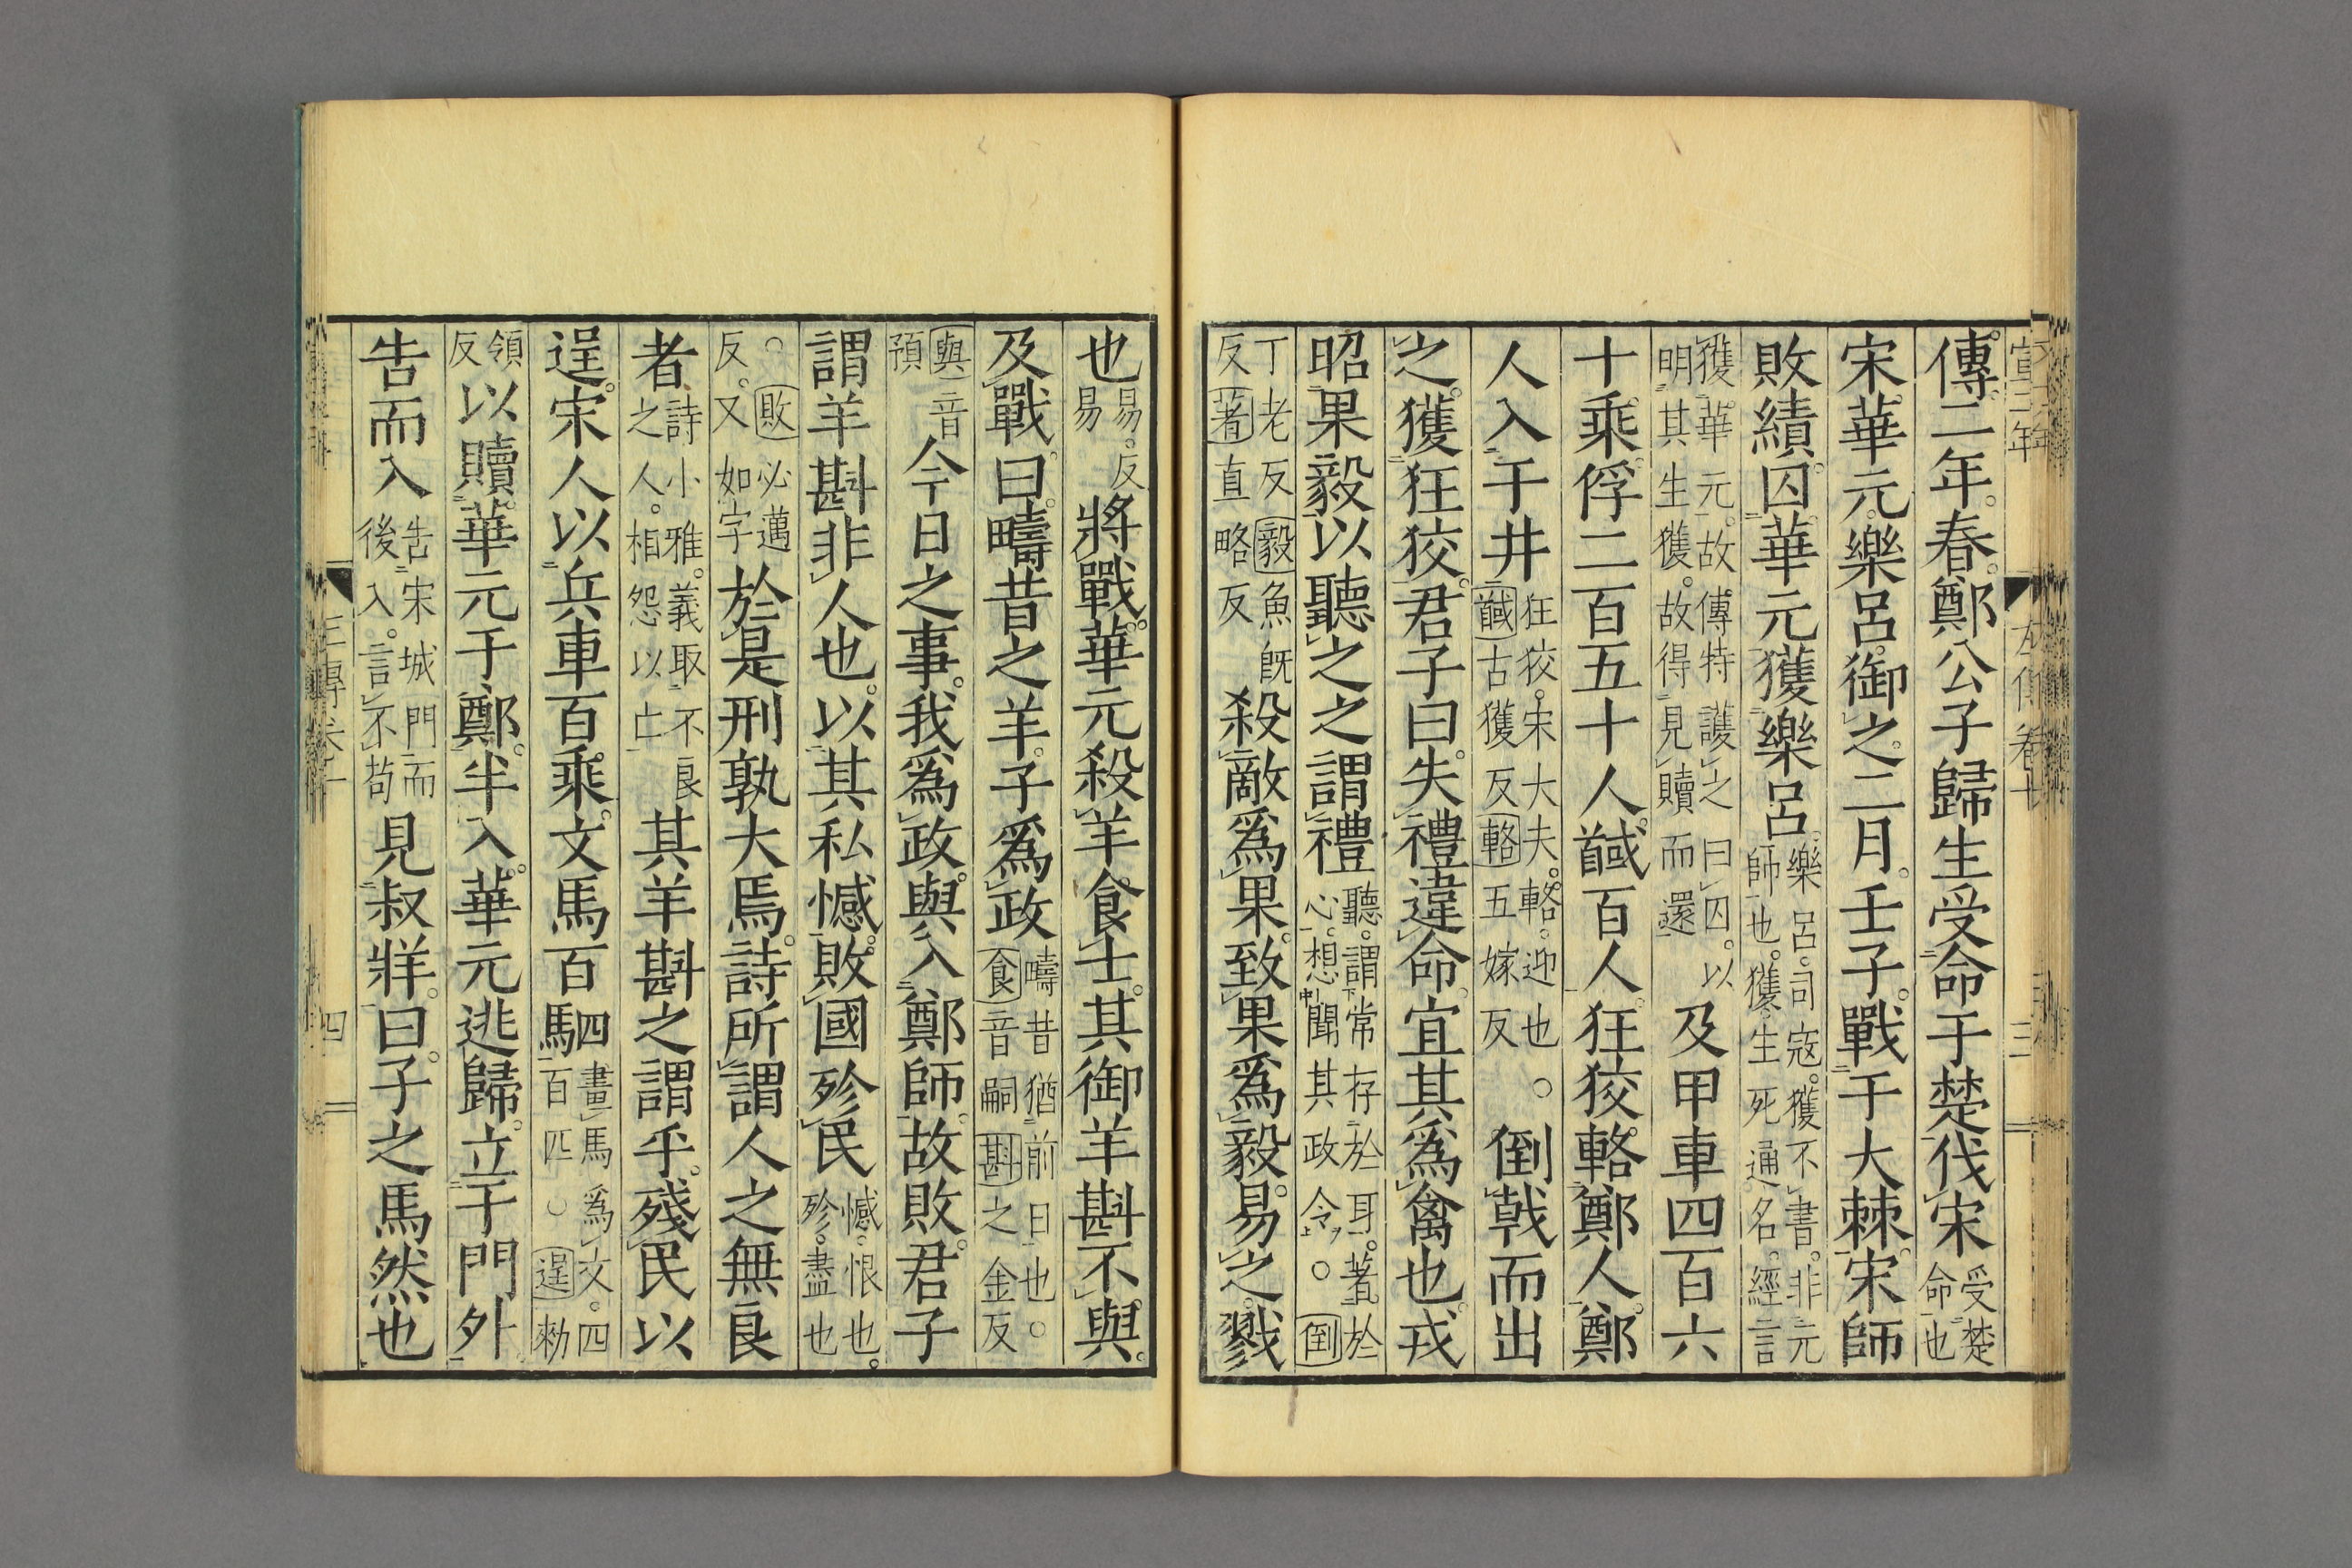 傳。二年。春。鄭公子歸生受命于楚伐宋受楚命也
宋。華元。樂呂。御之。二月。壬子。戰于大棘。宋師
敗績。囚華元獲樂呂。樂呂。司寇。獲不書。非元師也。獲。生死通名。經言
獲華元。故傳特護之曰囚。以明其生獲。故得見贖而還及甲車四百六
十乘。俘二百五十人馘百人。狂狡輅鄭人。鄭
人入于井狂狡。宋大夫。輅。迎也。○馘古獲反輅五嫁反倒戟而出
之。獲狂狡。君子曰。失禮違命。宜其為禽也。戎
昭果毅以聽之之謂禮聽。謂常存於耳。著於心。想聞其政令。○倒
丁老反毅魚既反著直略反殺敵為果。致果為毅。易之。戮
也易。反易將戰。華元殺羊。食士。其御羊斟不與。
及戰。曰。疇昔之羊。子為政疇昔猶前日也。○食音嗣斟之金反
與音預今日之事。我為政。與入鄭師。故敗。君子
謂羊斟非人也。以其私憾。敗國殄民憾。恨也。殄。盡也
○敗必邁反。又如字於是刑孰大焉。詩所謂人之無良
者詩小雅。義取不良之人。相怨以亡其羊斟之謂乎。殘民以
逞。宋人以兵車百乘。文馬百駟畫馬為文。四百匹○逞勑
領反以贖華元于鄭。半入。華元逃歸。立于門外
告而入告宋城門而後入。言不苟見叔牂。曰。子之馬然也